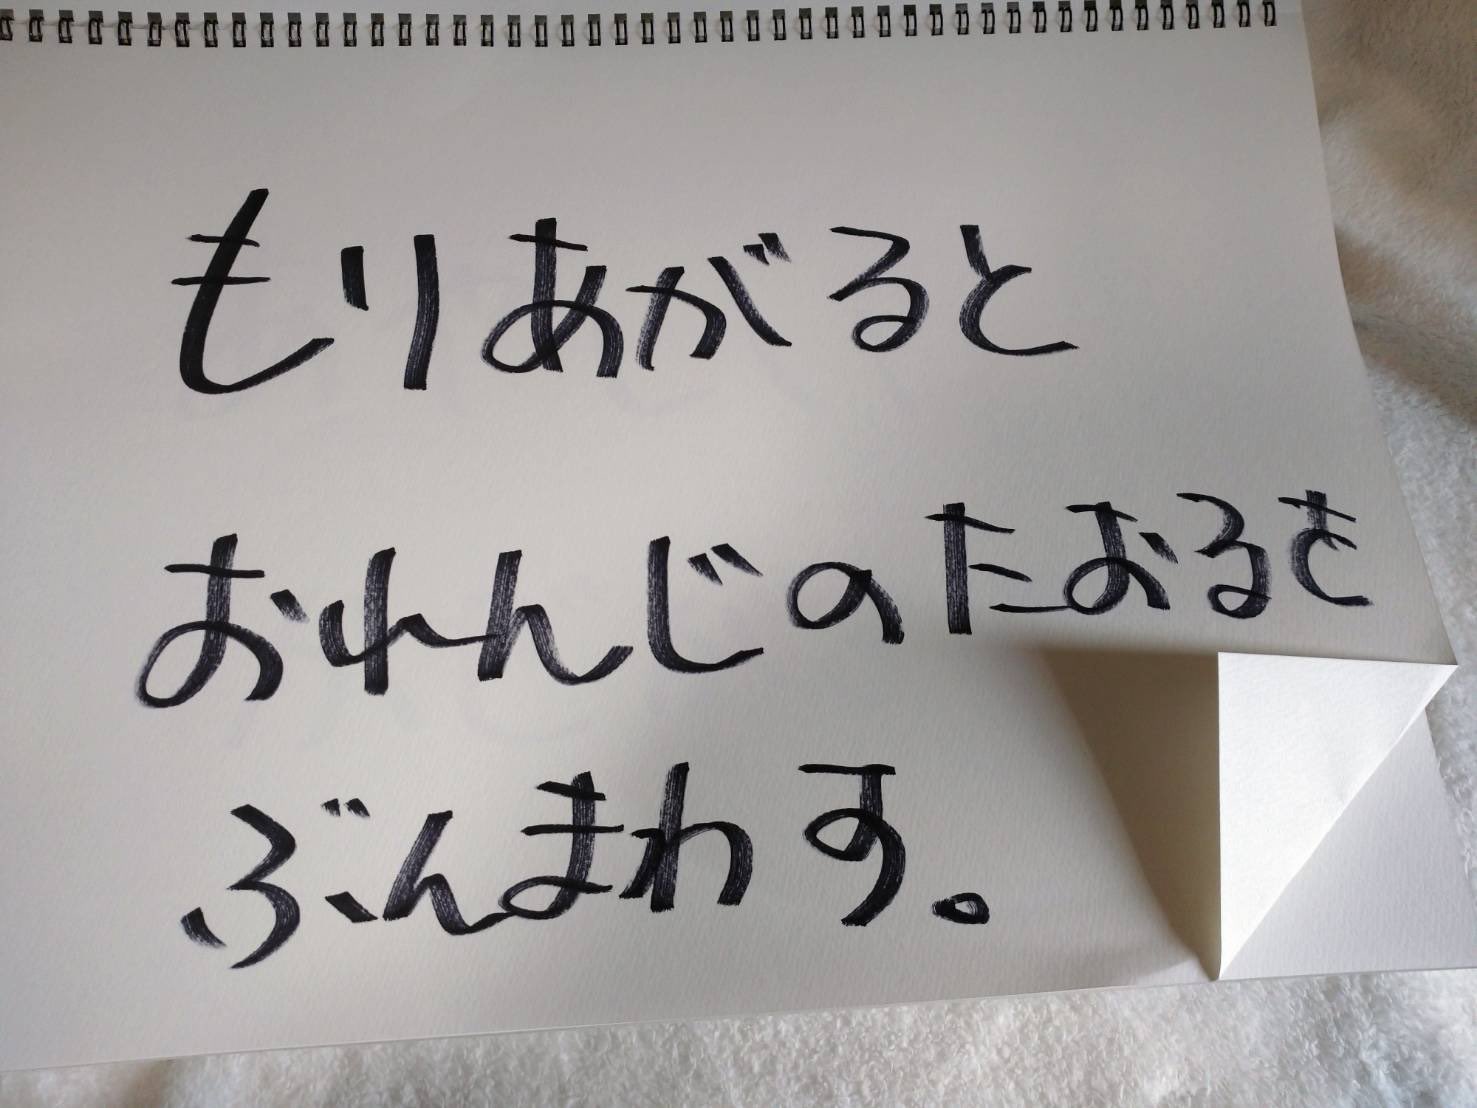 もりあがると
おれんじのたおるを
ぶんまわす。